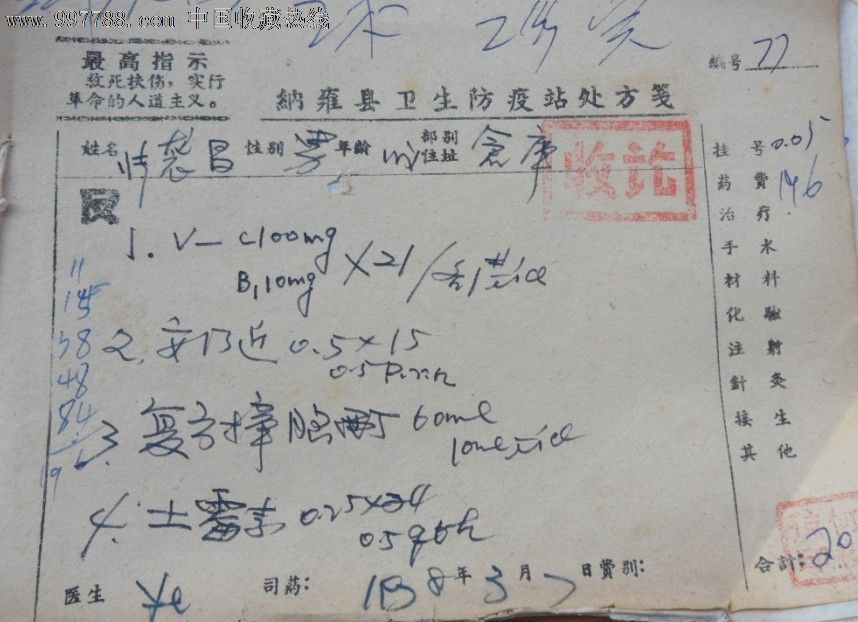 www.997788.com 中国收藏热线
最高指示
救死扶伤，实行
革命的人道主义。
编号 77
納雍县卫生防疫站处方箋
姓名 昌 性别 男 年龄 成 部别住址 倉库
收讫
挂号 0.05
药費 146
治疗
手术
材料
化验
注射
針灸
接生
其他
1. V— C 100mg
B1 10mg ×21/各1# tid
11
15
38
48
84
2. 安乃近 0.5×15
0.5 p.r.n
3. 复方樟脑酊 60ml
10ml tid
4. 土霉素 0.25×24
0.5 q6h
合計: 20
医生 Ye 司药: 8年3月7日費别: